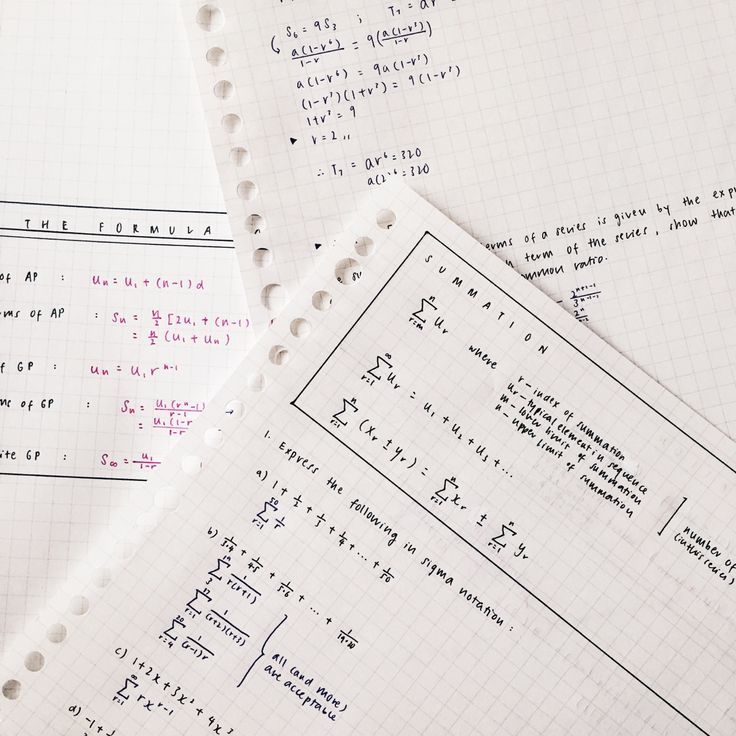 S₆ = 9S₃ ; T₇ = ar
a(1-r⁶)/1-r = 9(a(1-r³)/1-r)
a(1-r⁶) = 9a(1-r³)
(1-r³)(1+r³) = 9(1-r³)
1+r³ = 9
r = 2 ,,
∴ T₇ = ar⁶ = 320
a(2)⁶ = 320
erms of a series is given by the exp
term of the series, show that
mmon ratio.
2ⁿ⁺¹⁻¹/3ⁿ⁻¹⁻¹
THE FORMULA
of AP : Uₙ = U₁ + (n-1)d
ms of AP : Sₙ = n/2 [2U₁ + (n-1)
= n/2 (U₁ + Uₙ)
f GP : Uₙ = U₁ rⁿ⁻¹
ms of GP : Sₙ = U₁(rⁿ-1)/r-1
= U₁(1-r
ite GP : S∞ = U₁/1-r
SUMMATION
∑ⁿᵣ₌ₘ Uᵣ where r - index of summation
Uᵣ - typical element in sequence
m - lower limit of summation
n - upper limit of summation
number of
(in this series)
∑^∞ᵣ₌₁ Uᵣ = U₁ + U₂ + U₃ + ...
∑ⁿᵣ₌₁ (xᵣ ± yᵣ) = ∑ⁿᵣ₌₁ xᵣ ± ∑ⁿᵣ₌₁ yᵣ
1. Express the following in sigma notation :
a) 1 + 1/2 + 1/3 + 1/4 + ... + 1/50
∑⁵⁰ᵣ₌₁ 1/r
b) 1/3·4 + 1/4·5 + 1/5·6 + ... + 1/19·20
∑¹⁹₃ 1/r(r+1)
∑ᵣ₌₁ 1/(r+2)(r+3)
∑²⁰ᵣ₌₄ 1/(r-1)r
all (and more)
are acceptable
c) 1 + 2x + 3x² + 4x³
∑^∞ᵣ₌₁ rxʳ⁻¹
d) -1 +